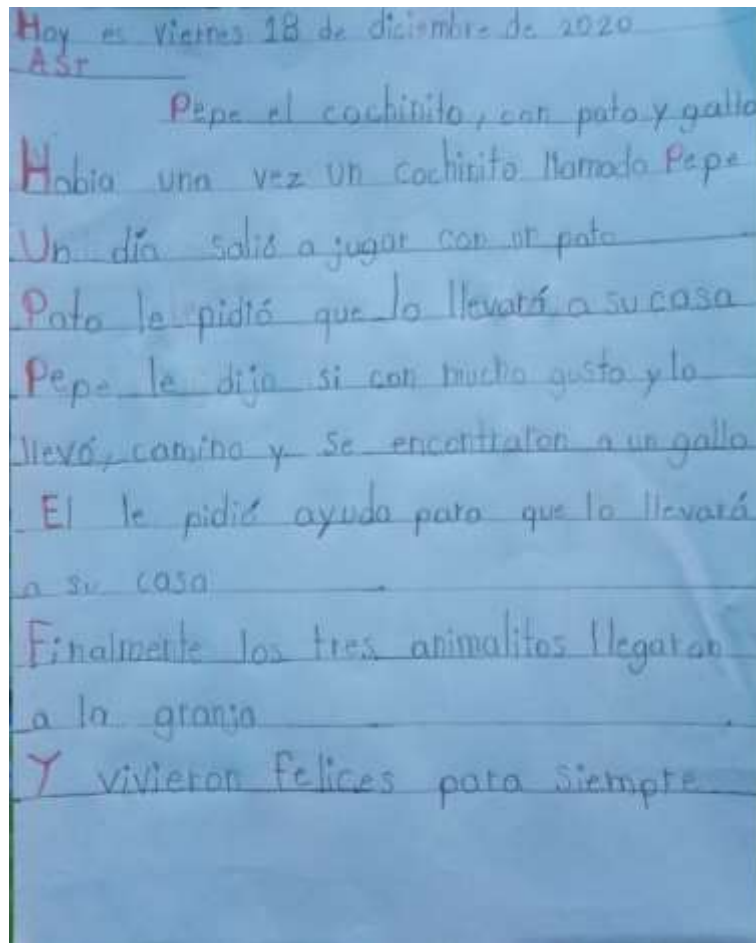 Hoy es viernes 18 de diciembre de 2020
ASr
Pepe el cochinito, con pato y gallo
Habia una vez un cochinito llamado Pepe
Un día salió a jugar con un pato
Pato le pidió que lo llevará a su casa
Pepe le dijo si con mucho gusto y lo
llevó, camino y se encontraron a un gallo
El le pidió ayuda para que lo llevará
a su casa
Finalmente los tres animalitos llegaron
a la granja
Y vivieron felices para siempre